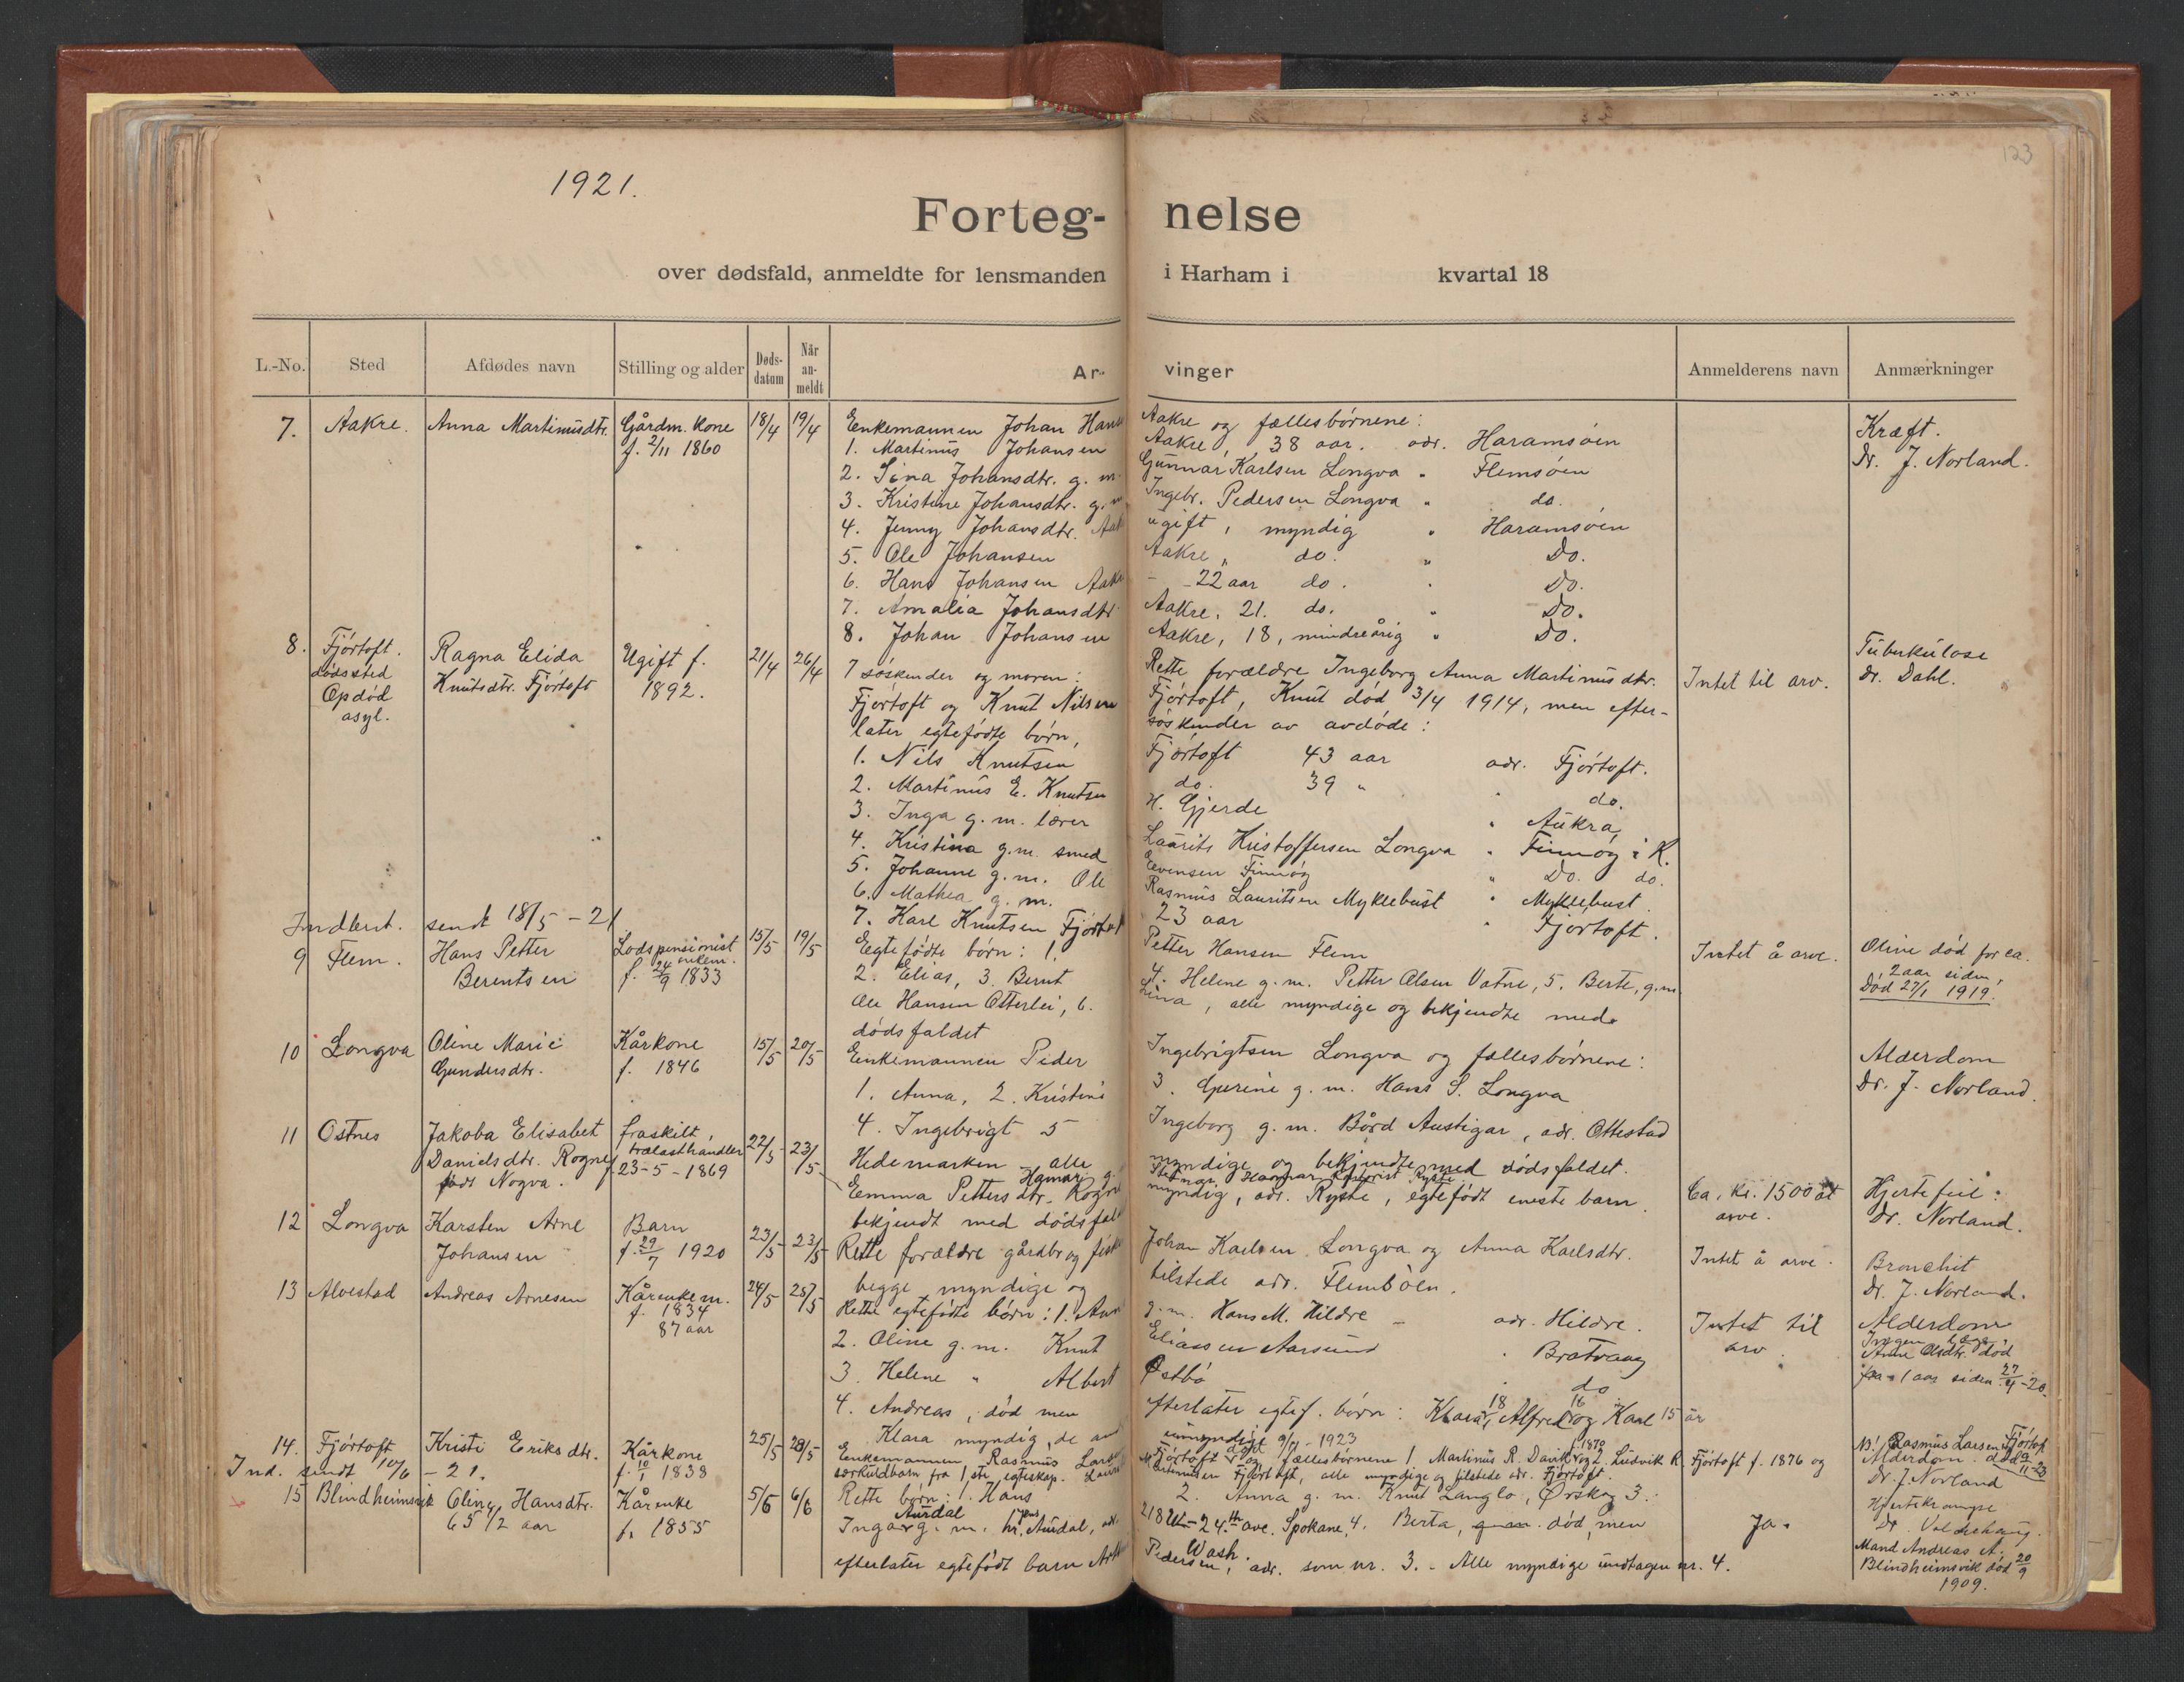 123
1921.
Forteg- nelse
over dødsfald, anmeldte for lensmanden i Harham i kvartal 18
L.-No. Sted Afdødes navn Stilling og alder Døds-datum Når an-meldt Ar- vinger Anmelderens navn Anmærkninger
7. Aakre. Anna Martinusdtr. Gårdm. kone 18/4 19/4 Enkemannen Johan Hans Aakre og fællesbørnene: Kræft.
f. 2/11 1860 1. Martinus Johansen Aakre, 38 aar. adr. Haramsøen Dr. J. Norland.
2. Sina Johansdtr. g. m. Gunnar Karlsen Longva " Flemsøen
3. Kristine Johansdtr. g. m Ingebr. Pedersen Longva " do.
4. Jenny Johansdtr. Aak ugift, myndig " Haramsøen
5. Ole Johansen Aakre, do. " Do.
6. Hans Johansen Aakre - 22 aar do. " Do.
7. Amalia Johansdtr Aakre, 21. do. " Do.
8. Johan Johansen Aakre, 18, mindreårig " Do.
8. Fjørtoft. Ragna Elida Ugift f. 21/4 26/4 7 søskender og moren: Rette forældre Ingeborg Anna Martinusdtr. Intet til arv. Tuberkulose
dødssted Knutsdtr. Fjørtoft 1892. Fjørtoft og Knut Nilsen Fjørtoft, Knut død 3/4 1914, men efter- Dr. Dahl.
Opdød later egtefødte børn, søskender av avdøde:
asyl. 1. Nils Knutsen Fjørtoft 43 aar adr. Fjørtoft.
2. Martinus E. Knutsen do. 39 " " do.
3. Inga g. m. lærer H. Gjerde " Aukra
4. Kristina g. m. smed Laurits Kristoffersen Longva " Finnøy i K.
5. Johanne g. m. Ole Evensen Finnøy " Do. do.
6. Mathea g. m. Rasmus Lauritsen Myklebust " Myklebust
Indbert. sendt 18/5 - 21 7. Karl Knutsen Fjørtoft 23 aar " Fjørtoft.
9 Flem. Hans Petter Lodspensionist 15/5 19/5 Egtefødte børn: 1. Petter Hansen Flem Intet å arve. Oline død for ca.
Berentsen enkem. f. 24/9 1833 2. Elias, 3. Bernt 4. Helene g. m. Petter Olsen Vatne, 5. Berte, g. m. 2 aar siden.
Ole Hansen Otterlei, 6. Lina, alle myndige og bekjendte med Død 27/1 1919.
dødsfaldet
10 Longva Oline Marie Kårkone 15/5 20/5 Enkemannen Peder Ingebrigtsen Longva og fællesbørnene: Alderdom
Gundersdtr. f. 1846 1. Anna, 2. Kristine 3. Gurine g. m. Hans S. Longva Dr. J. Norland.
4. Ingebrigt 5 Ingeborg g. m. Bård Austigar, adr. Ottestad
Hedemarken alle myndige og bekjendte med dødsfaldet.
11 Ostnes Jakoba Elisabet fraskilt, 22/5 23/5 Emma Pettersdtr. Rogne myndig, adr. Ryste, egtefødt eneste barn. Ca. kr. 1500 at Hjertefeil:
Danielsdtr. Rogne trælasthandler Hamar g. arve. Dr. Norland.
født Nogva. f. 23-5-1869 bekjendt med dødsfal
12 Longva Karsten Arne Barn 23/5 23/5 Rette forældre gårdbr og fisk Johan Karlsen Longva og Anna Karlsdtr. Intet å arve. Bronchit
Johansen f. 29/7 1920 begge myndige og tilstede adr. Flemsøen. Dr. J. Norland.
13 Alvestad Andreas Arnesen Kårenkem. 24/5 25/5 Rette egtefødte børn: 1. Ann g. m. Hans M. Hildre - adr. Hildre. Intet til Alderdom
f. 1834 2. Oline g. m. Knut Eliassen Aarsund " Bratvaag arv. Ingen læge.
87 aar 3. Helene " Albert Østbø " do Anne Olsdtr. død
4. Andreas, død men efterlater egtef. børn: Klara 18, Alfred 16 og Karl 15 år for 1 aar siden 27/4-20.
Klara myndig, de an umyndige
14. Fjørtoft Kristi Eriksdtr. Kårkone 25/5 28/5 Enkemannen Rasmus Larsen Fjørtoft død 9/11-1923 og fællesbørnene 1 Martinus R. Davik f. 1870 og 2. Ludvik R. Fjørtoft f. 1876 og N! Rasmus Larsen Fjørtoft
Ind. sendt 10/6 - 21. f. 10/1 1838 særkuldbarn fra 1ste egteskap. Martinusen Fjørtoft, alle myndige og tilstede adr. Fjørtoft. Alderdom død 9/11-23
Dr. J. Norland
15 Blindheimsvik Oline Hansdtr. Kårenke 5/6 6/6 Rette børn: 1. Hans 2. Anna g. m. Knut Langlo, Ørskog 3. Ja. Hjertekrampe
65 1/2 aar f. 1855 Inga g. m. hr. Aurdal, adr. 2182-24th ave. Spokane, Wash. 4. Berta, død, men Dr.
efterlater egtefødt barn Pedersen, adr. som nr. 3. - Alle myndige undtagen nr. 4. Mand Andreas A.
Blindheimsvik død 20/9
1909.